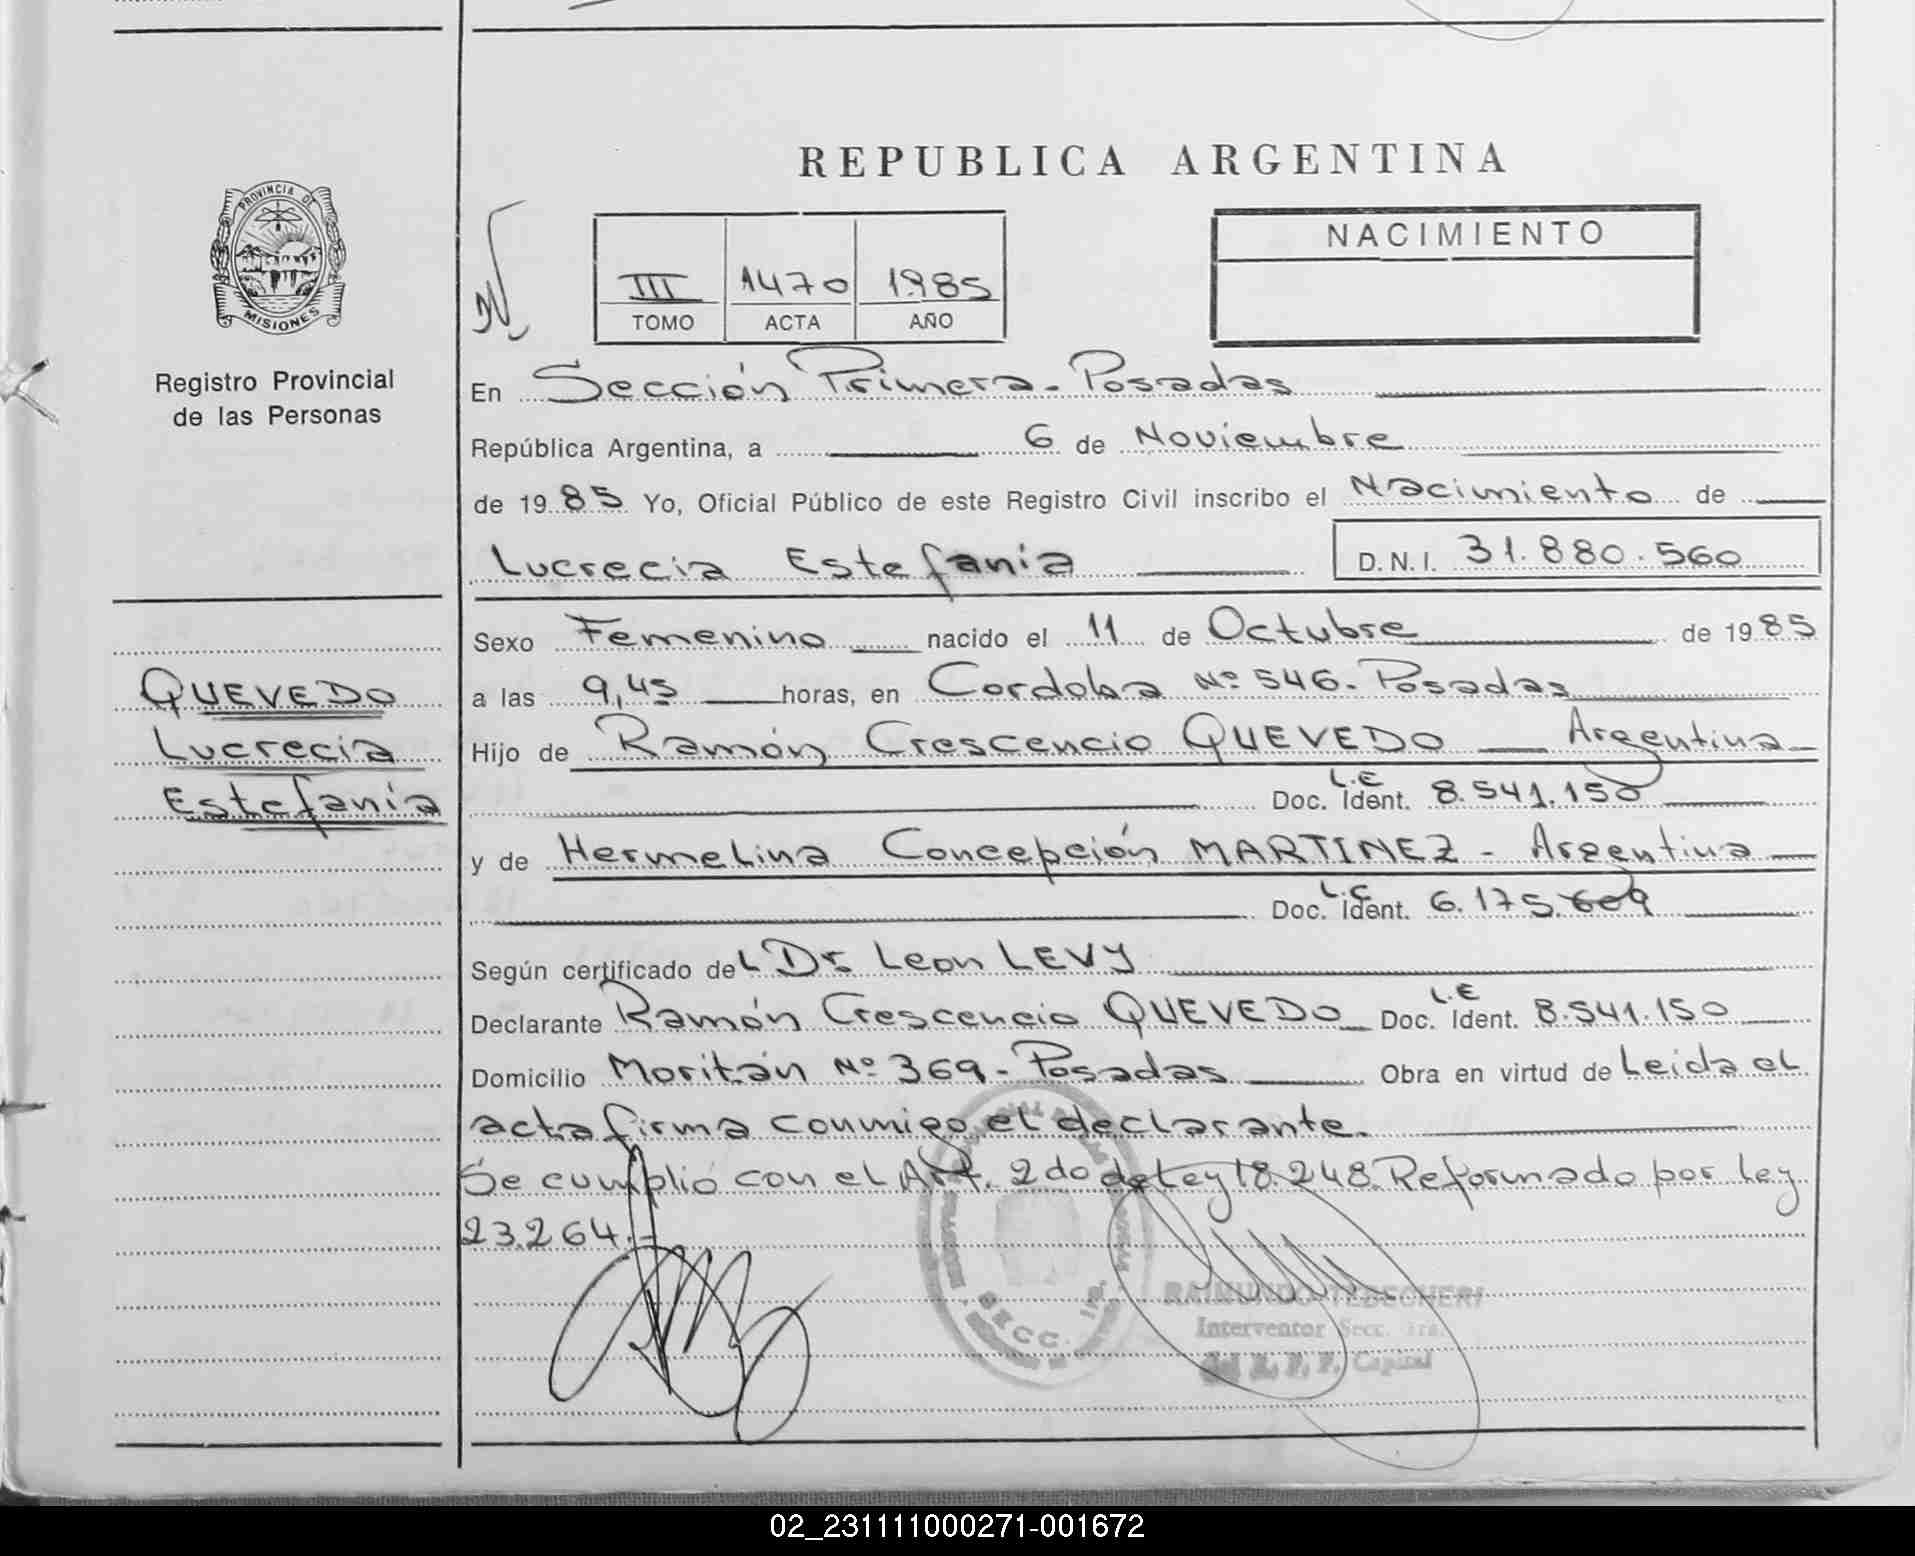 REPUBLICA ARGENTINA
PROVINCIA DE
MISIONES
Registro Provincial
de las Personas
III 1470 1985
TOMO ACTA AÑO
NACIMIENTO
En Sección Primera - Posadas
República Argentina, a 6 de Noviembre
de 1985 Yo, Oficial Público de este Registro Civil inscribo el Nacimiento de
Lucrecia Estefanía D.N.I. 31.880.560
Sexo Femenino nacido el 11 de Octubre de 1985
QUEVEDO
Lucrecia
Estefanía
a las 9,45 horas, en Cordoba Nº 546. Posadas
Hijo de Ramón Crescencio QUEVEDO Argentina
Doc. Ident. L.E 8.541.150
y de Hermelina Concepción MARTINEZ - Argentina
Doc. Ident. L.C 6.175.609
Según certificado del Dr. Leon LEVY
Declarante Ramón Crescencio QUEVEDO Doc. Ident. L.E 8.541.150
Domicilio Moritán Nº 369 - Posadas Obra en virtud de Leida el
acta firma conmigo el declarante.
Se cumplió con el Art. 2do de Ley 18.248. Reformado por Ley
23.264.-
SECC. 1ra.
RAIMUNDO TEDECHERI
Interventor Secc. 1ra.
Capital
02_231111000271-001672